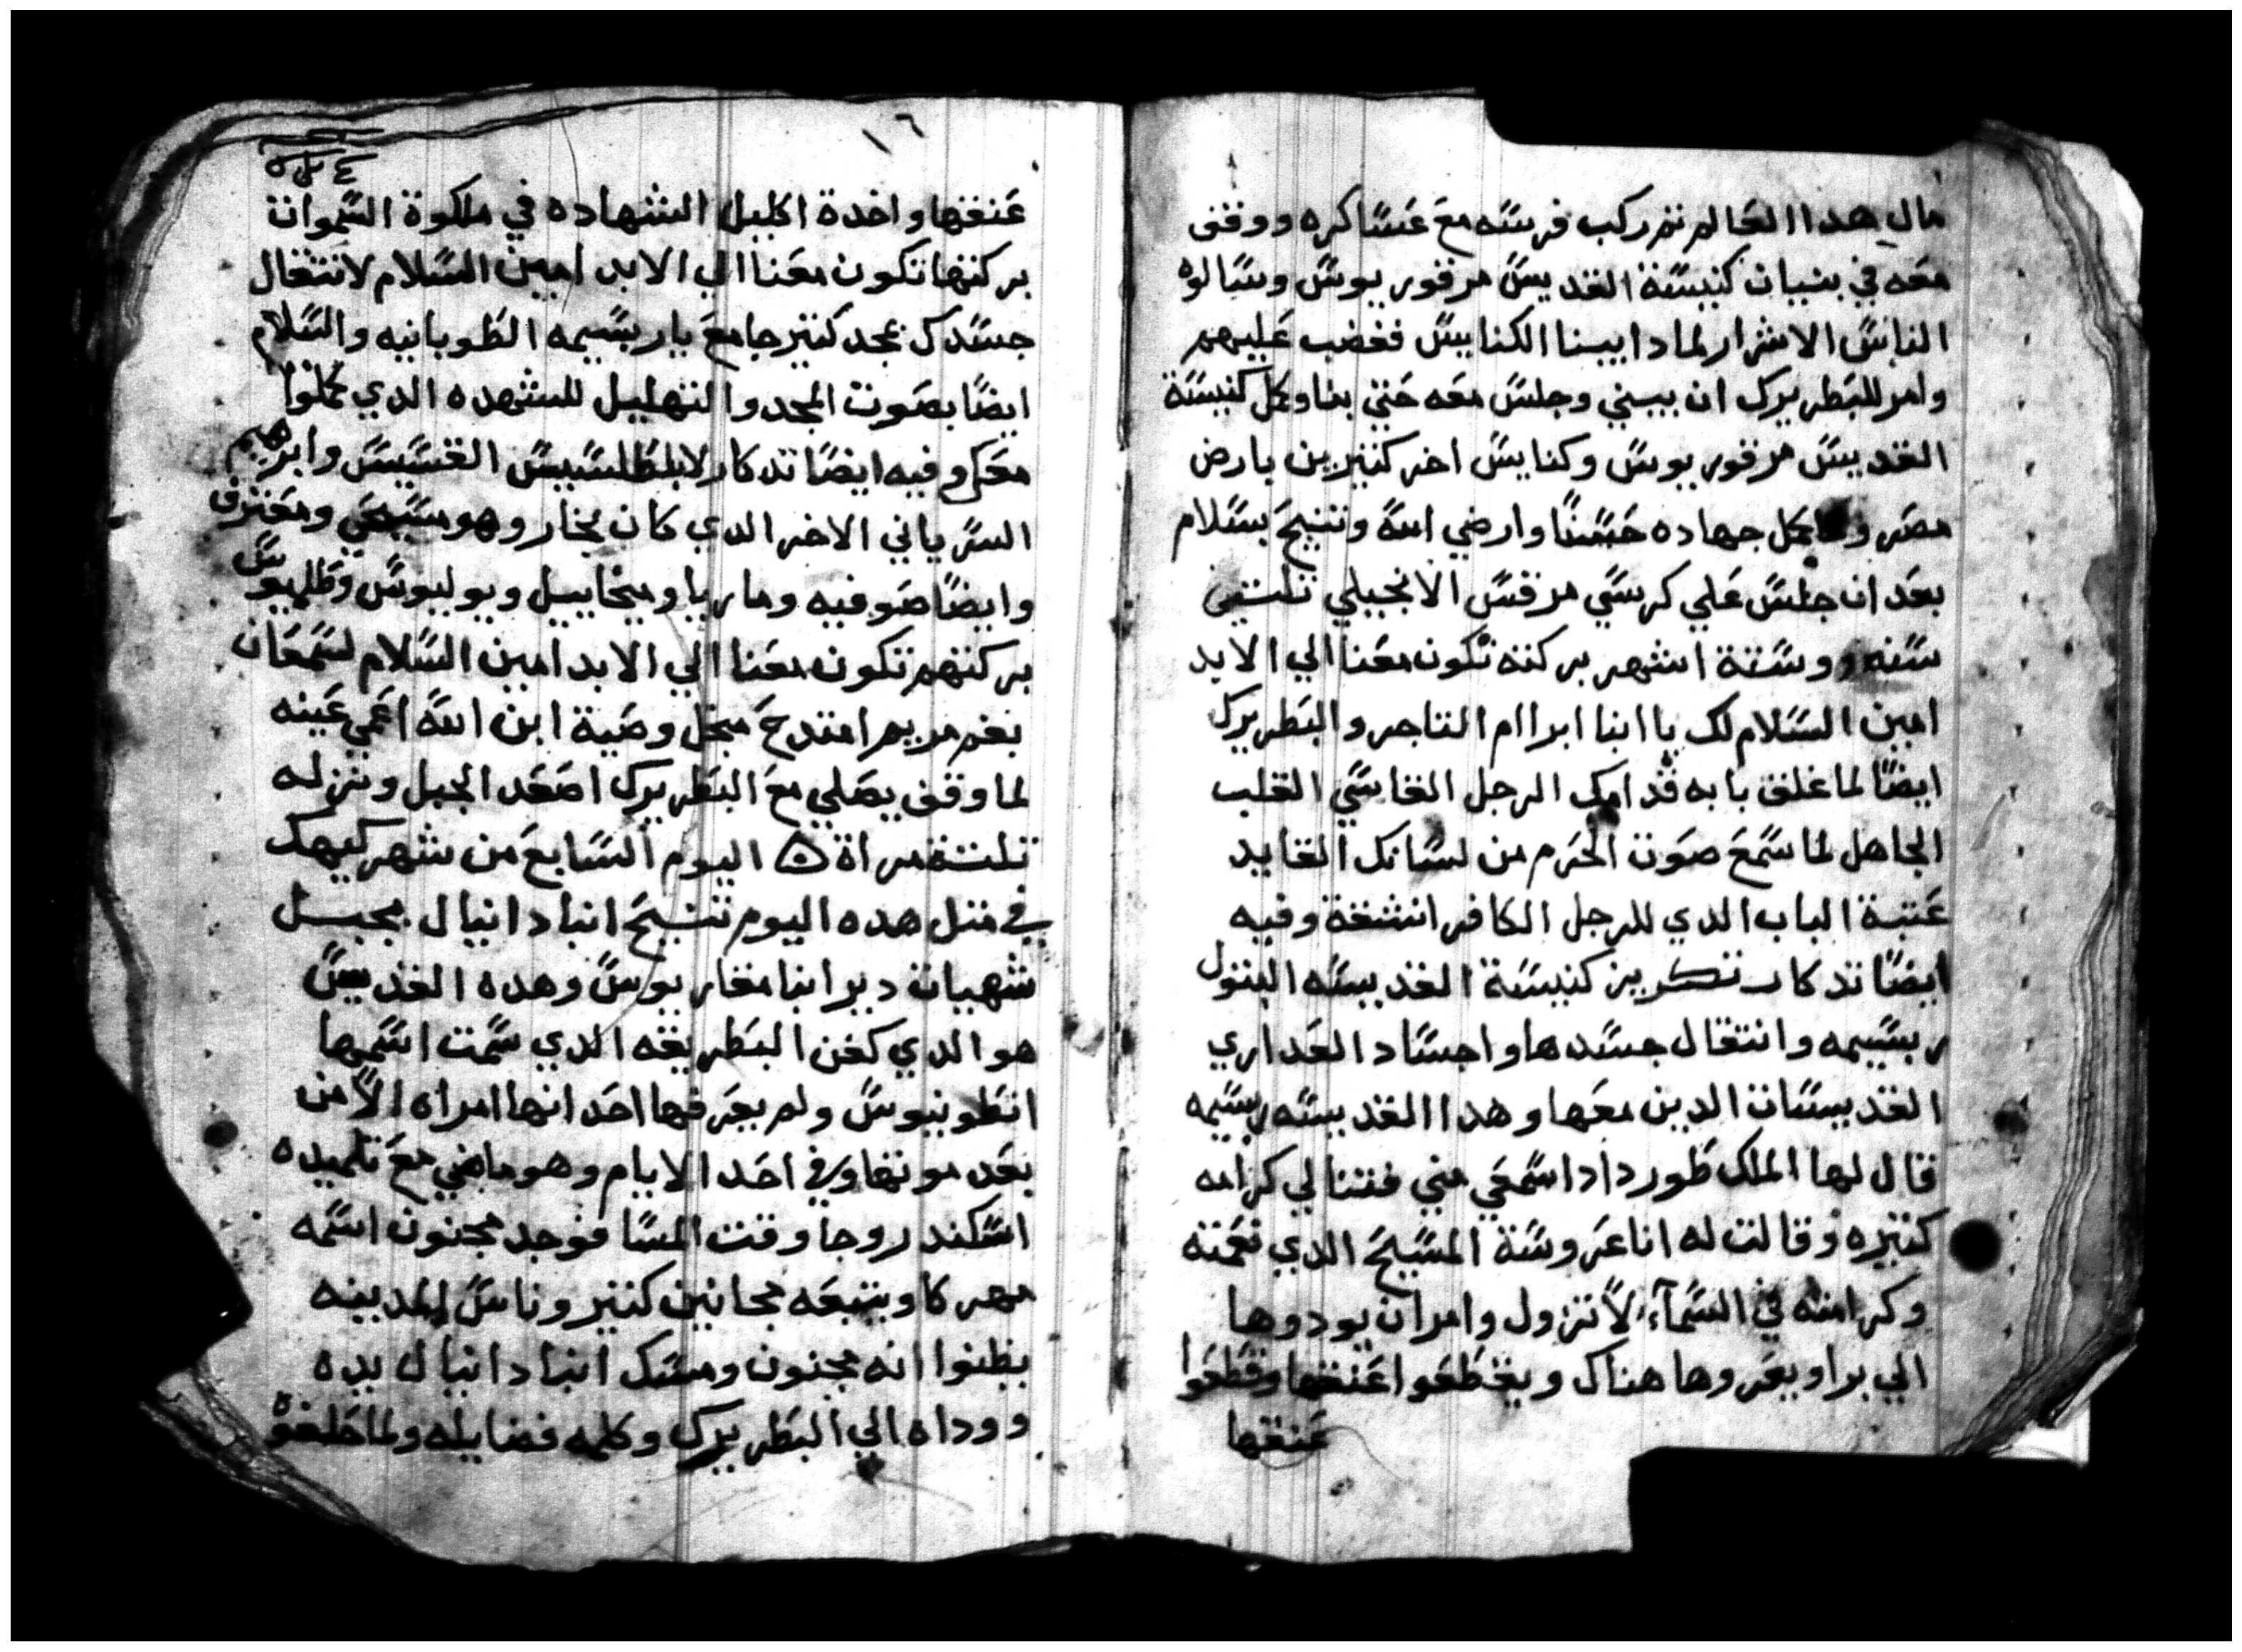 مال هدا العالم نم ركب فرسه مع عساكره ووقف
معه في بنيان كنيسة القديس مرقوريوس وسالوه
الناس الاشرار لمادا يبنا الكنايس فغضب عليهم
وامر للبطريرك ان يبني وجلس معه حتي بنا وكمل كنيسة
القديس مرقوريوس وكنايس اخر كتيرين بارض
مصر وكمل جهاده حسنًا وارضي الله وتنيح بسلام
بعد ان جلس علي كرسي مرقس الانجيلي تلتين
سنه وستة اشهر بركته تكون معنا الي الابد
امين السلام لك يا انبا ابراام التاجر والبطريرك
ايضًا لما غلق بابه قدامك الرجل القاسي القلب
الجاهل لما سمع صوت الحرم من لسانك القايد
عتبة الباب الدي للرجل الكافر انشقة وفيه
ايضًا تدكار تكريز كنيسة القديسه البتول
ربسيمه وانتقال جسدها واجساد العداري
القديسات الدين معها وهدا القديسه ربسيمه
قال لها الملك طورداد اسمعي مني فتنالي كرامه
كتيره وقالت له انا عروسة المسيح الدي نعمته
وكرامته في السمآء لا تزول وامر ان يودوها
الي برا ويعروها هناك ويقطعوا عنقها وقطعوا
عنقها
١٦
عنقها واخدة اكليل الشهاده في ملكوة السموات
بركتها تكون معنا الي الابد امين السلام لانتقال
جسدك بمجد كتير جامع يا ربسيمه الطوبانيه والسلام
ايضًا بصوت المجد والتهليل للشهده الدي كملوا
معكي وفيه ايضًا تدكار لابلطلسيس القسيس وابرهيم
السرياني الاخر الدي كان بخار وهو مسيحي ومعترف
وايضًا صوفيه وماريا وميخاييل وبوليوس وطليوس
بركتهم تكون معنا الي الابد امين السلام لسمعان
بغم مريم امتدح مبجل وصية ابن الله اعمي عينه
لما وقف يصلي مع البطريرك اصعد الجبل ونزله
تلتة مراة اليوم السابع من شهر كيهك
في متل هده اليوم تنيح انبا دانيال بجبل
شهيات دير انبا مقاريوس وهده القديس
هو الدي كفن البطريقه الدي سمت اسمها
انطونيوس ولم يعرفها احد انها امراه الا من
بعد موتها وفي احد الايام وهو ماضي مع تلميده
اسكندروجا وقت المسا فوجد مجنون اسمه
مهركا ويتبعه مجانين كتير وناس المدينه
يظنوا انه مجنون ومسك انبا دانيال يده
ووداه الي البطريرك وكلمه فضايله ولما حلفوه